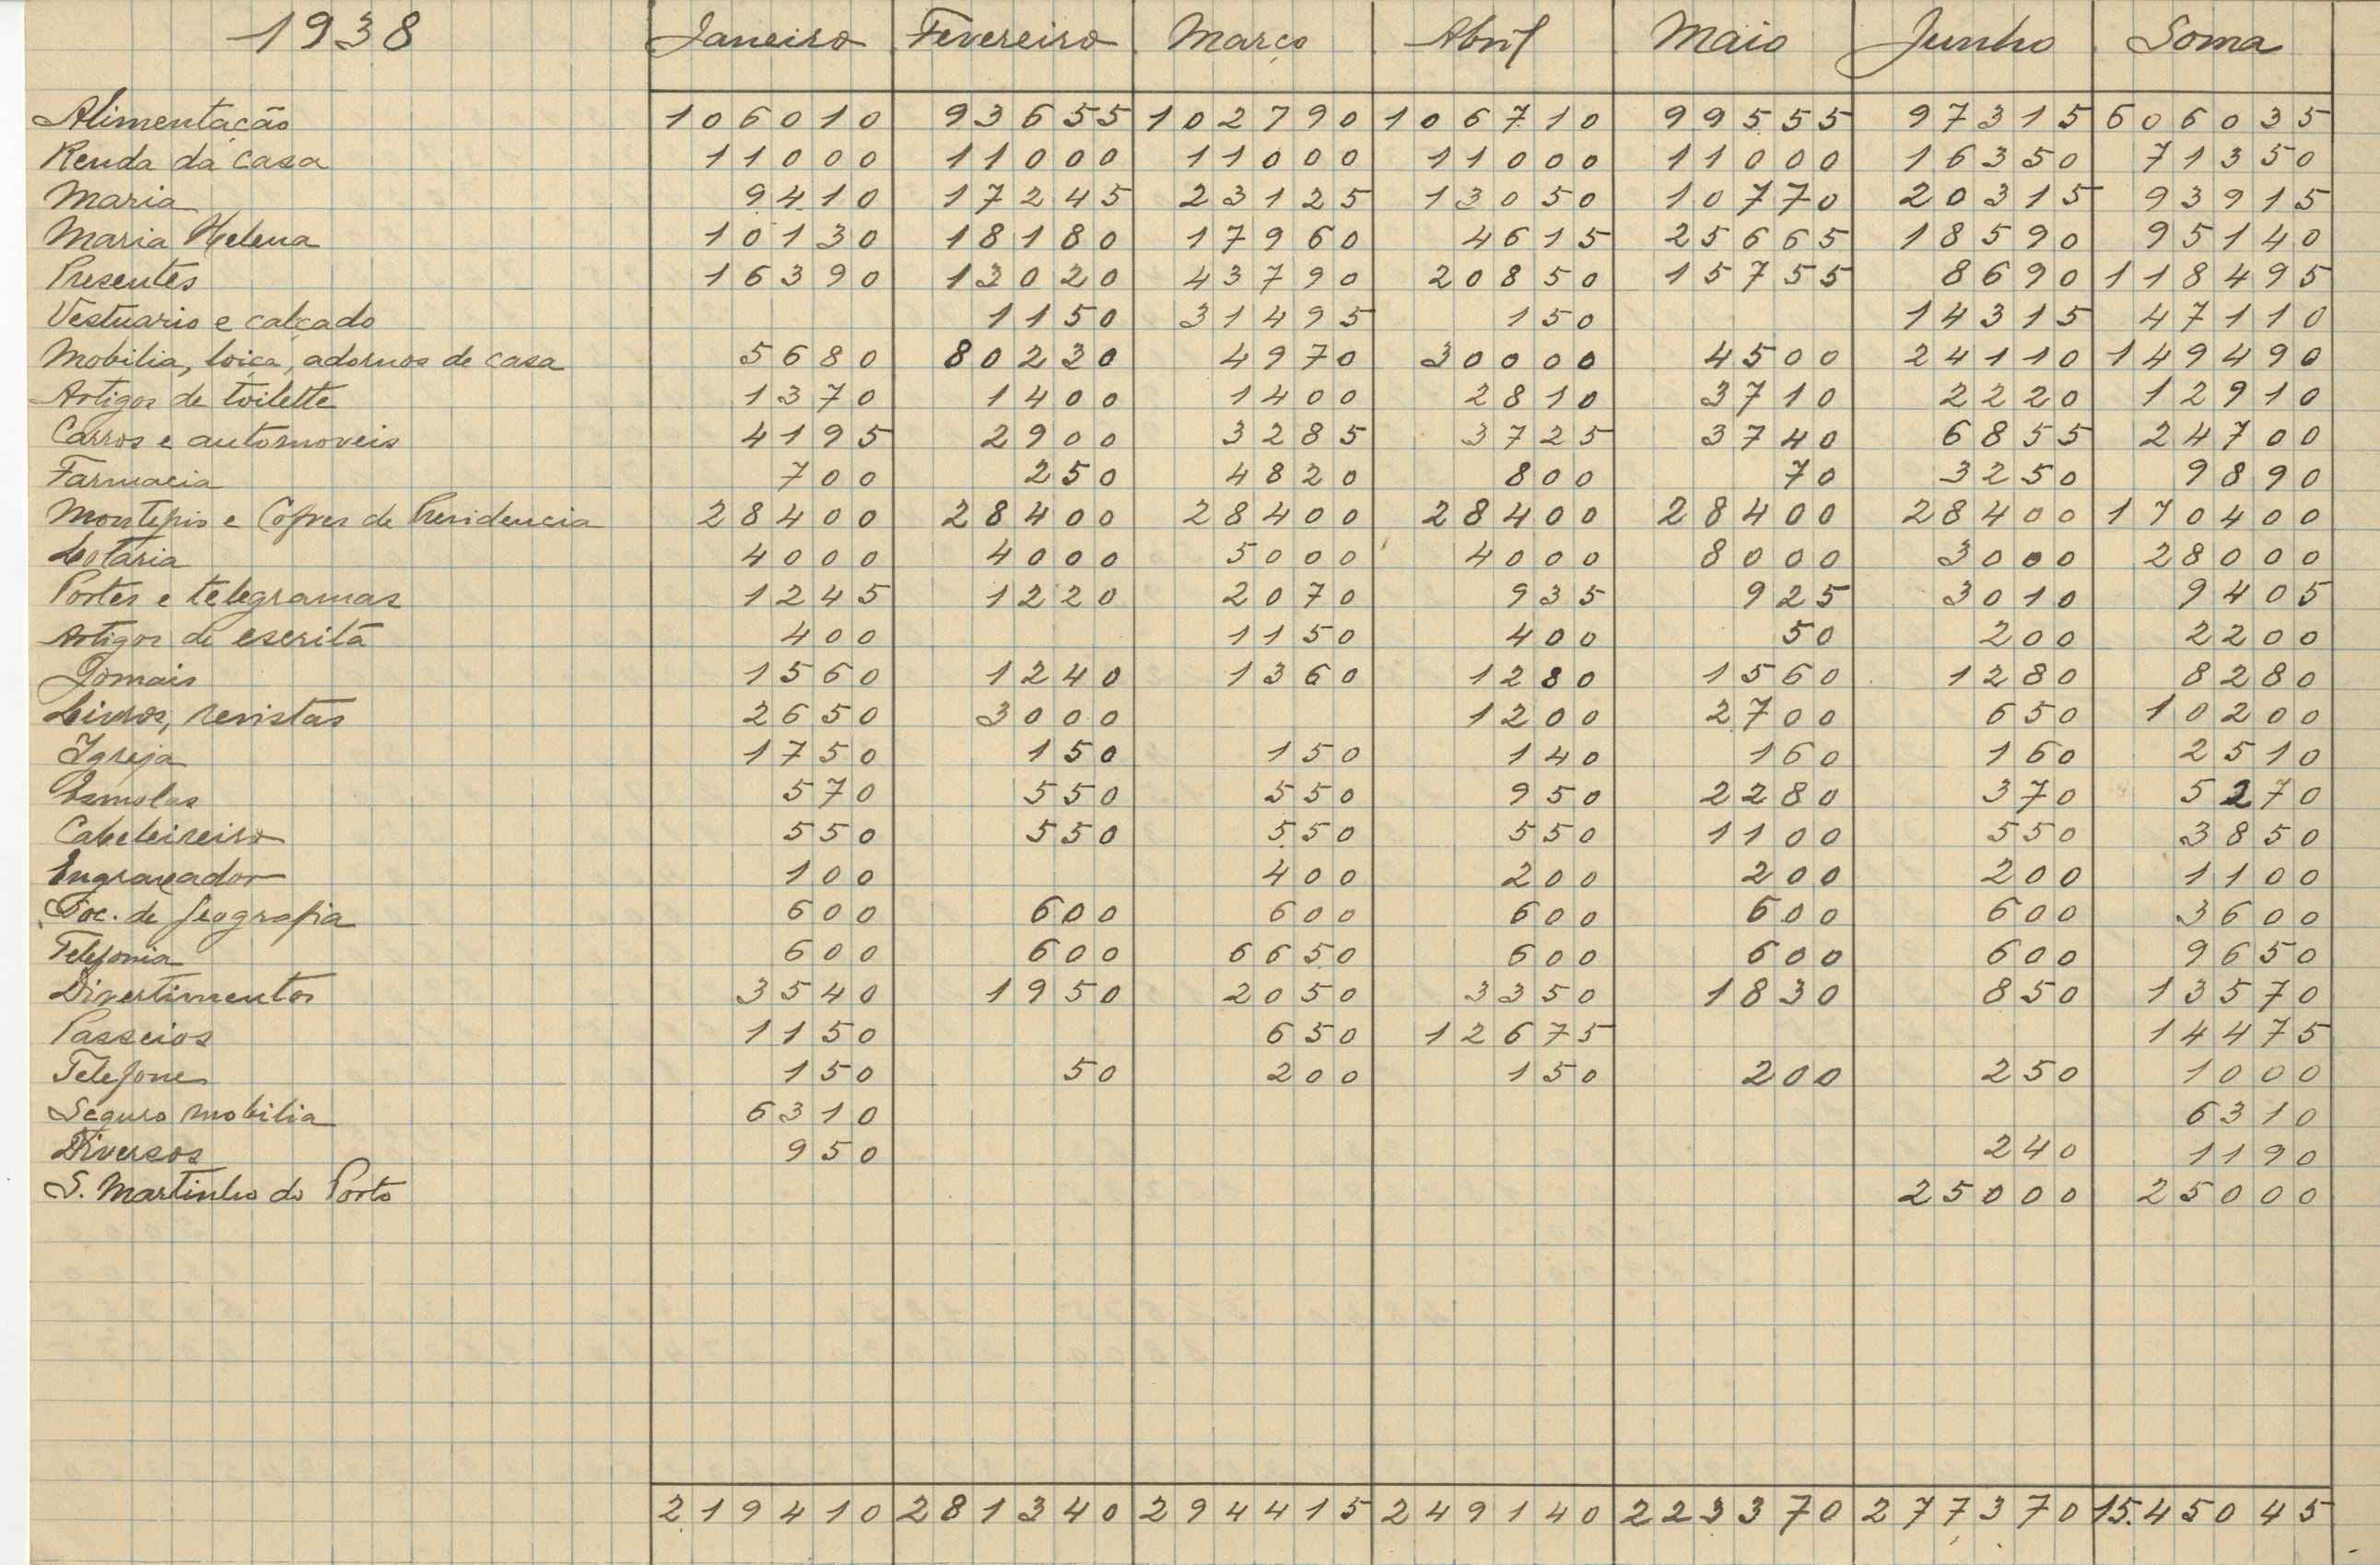 1938 Janeiro Fevereiro Março Abril Maio Junho Soma
Alimentação 106010 93655 102790 106710 99555 97315 606035
Renda da casa 11000 11000 11000 11000 11000 16350 71350
Maria 9410 17245 23125 13050 10770 20315 93915
Maria Helena 10130 18180 17960 4615 25665 18590 95140
Presentes 16390 13020 43790 20850 15755 8690 118495
Vestuario e calçado 1150 31495 150 14315 47110
Mobilia, loiça, adornos de casa 5680 80230 4970 30000 4500 24110 149490
Artigos de toilette 1370 1400 1400 2810 3710 2220 12910
Carros e automoveis 4195 2900 3285 3725 3740 6855 24700
Farmacia 700 250 4820 800 70 3250 9890
Montepio e Cofres de Previdencia 28400 28400 28400 28400 28400 28400 170400
Lotaria 4000 4000 5000 4000 8000 3000 28000
Portes e telegramas 1245 1220 2070 935 925 3010 9405
Artigos de escrita 400 1150 400 50 200 2200
Jornais 1560 1240 1360 1280 1560 1280 8280
Livros, revistas 2650 3000 1200 2700 650 10200
Igreja 1750 150 150 140 160 160 2510
Esmolas 570 550 550 950 2280 370 5270
Cabeleireiro 550 550 550 550 1100 550 3850
Engraxador 100 400 200 200 200 1100
Soc. de Geografia 600 600 600 600 600 600 3600
Telefonia 600 600 6650 600 600 600 9650
Divertimentos 3540 1950 2050 3350 1830 850 13570
Passeios 1150 650 12675 14475
Telefones 150 50 200 150 200 250 1000
Seguro mobilia 6310 6310
Diversos 950 240 1190
S. Martinho do Porto 25000 25000
219410 281340 294415 249140 223370 277370 15.45045